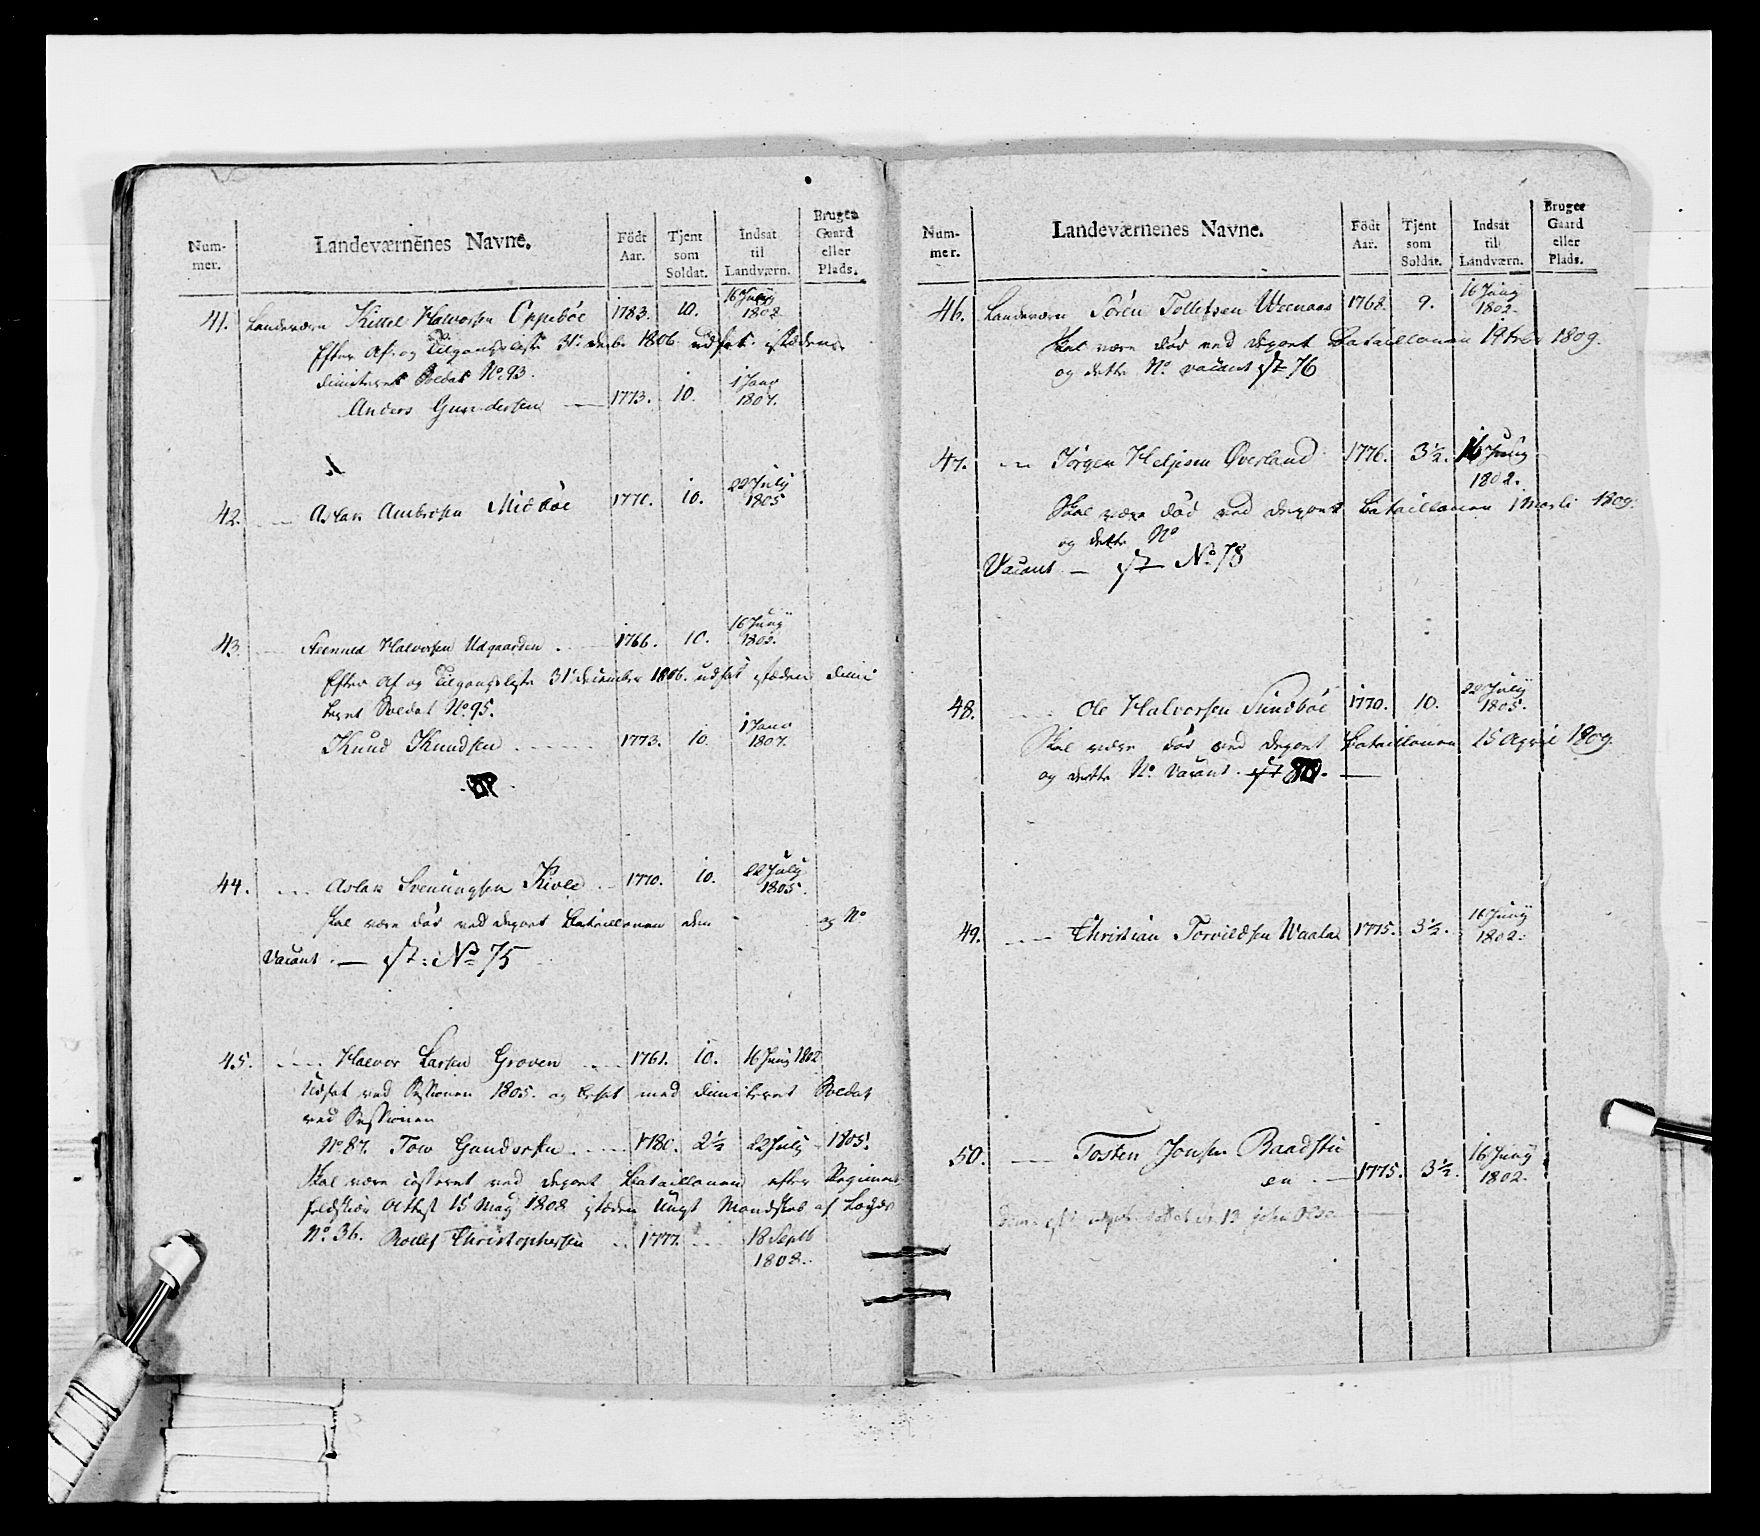 Num-
mer.
Landeværnenes Navne.
Födt
Aar.
Tjent
som
Soldat.
Indsat
til
Landværn.
Bruger
Gaard
eller
Plads.
41. Landeværn Kittel Halvorsen Oppeböe 1783. 10. 16 Junÿ 1802
Efter Af- og Tilgangsliste 31 decbr 1806 udsat istæden
dimiteret Soldat No. 93.
Anders Gundersen 1773. 10. 1 Janr 1807.
42. Aslak Ambiosen Midböe 1770. 10. 22 Julÿ 1805
43. Halvorsen Udgaarden 1766. 10. 16 Junÿ 1802.
Efter Af og Tilgangsliste 31 december 1806. udsat istæden dimi
teret Soldat No. 95.
Knud Knudsen 1773. 10. 1 Janr 1807.
44. Aslak Svenungsen Kivle 1770. 10. 22 Julÿ 1805.
skal være död ved depont Bataillonen den og No
Vacant. — No 75
45. Halvor Larsen Groven 1761. 10. 16 Junÿ 1802
Udsat ved Sessionen 1805. og besat med dimiteret Soldat
ved Sessionen
No. 87. Tow Gundersen 1780. 2½ 22 Julÿ 1805.
Skal være casseret ved depont Bataillonen efter Regiments
Attest 15 Maÿ 1808 istæden Ungt Mandskab af Lægds
No. 36. Roelef Christophersen 1777. 18 Septb 1808.
Num-
mer.
Landeværnenes Navne.
Födt
Aar.
Tjent
som
Soldat.
Indsat
til
Landværn.
Bruger
Gaard
eller
Plads.
46. Landeværn Sören Tollefsen Weenaas 1762. 9. 16 Junÿ 1802.
Skal være död ved depont Bataillonen 19 Febr 1809.
og dette No. vacant 76
47. Jörgen Helgesen Överland 1776. 3½. 16 Junÿ 1802.
Skal være död ved depont Bataillonen 1 Marti 1809.
og dette No
Vacant — No. 78
48. Ole Halvorsen Sundböe 1770. 10. 22 Julÿ 1805.
Skal være död ved depont Bataillonen 15 April 1809.
og dette No. Vacant.
49. Christian Torvildsen Waala 1775. 3½. 16 Junÿ 1802.
50. Tosten Jonsen Baadstu
en 1775. 3½. 16 Junÿ 1802.